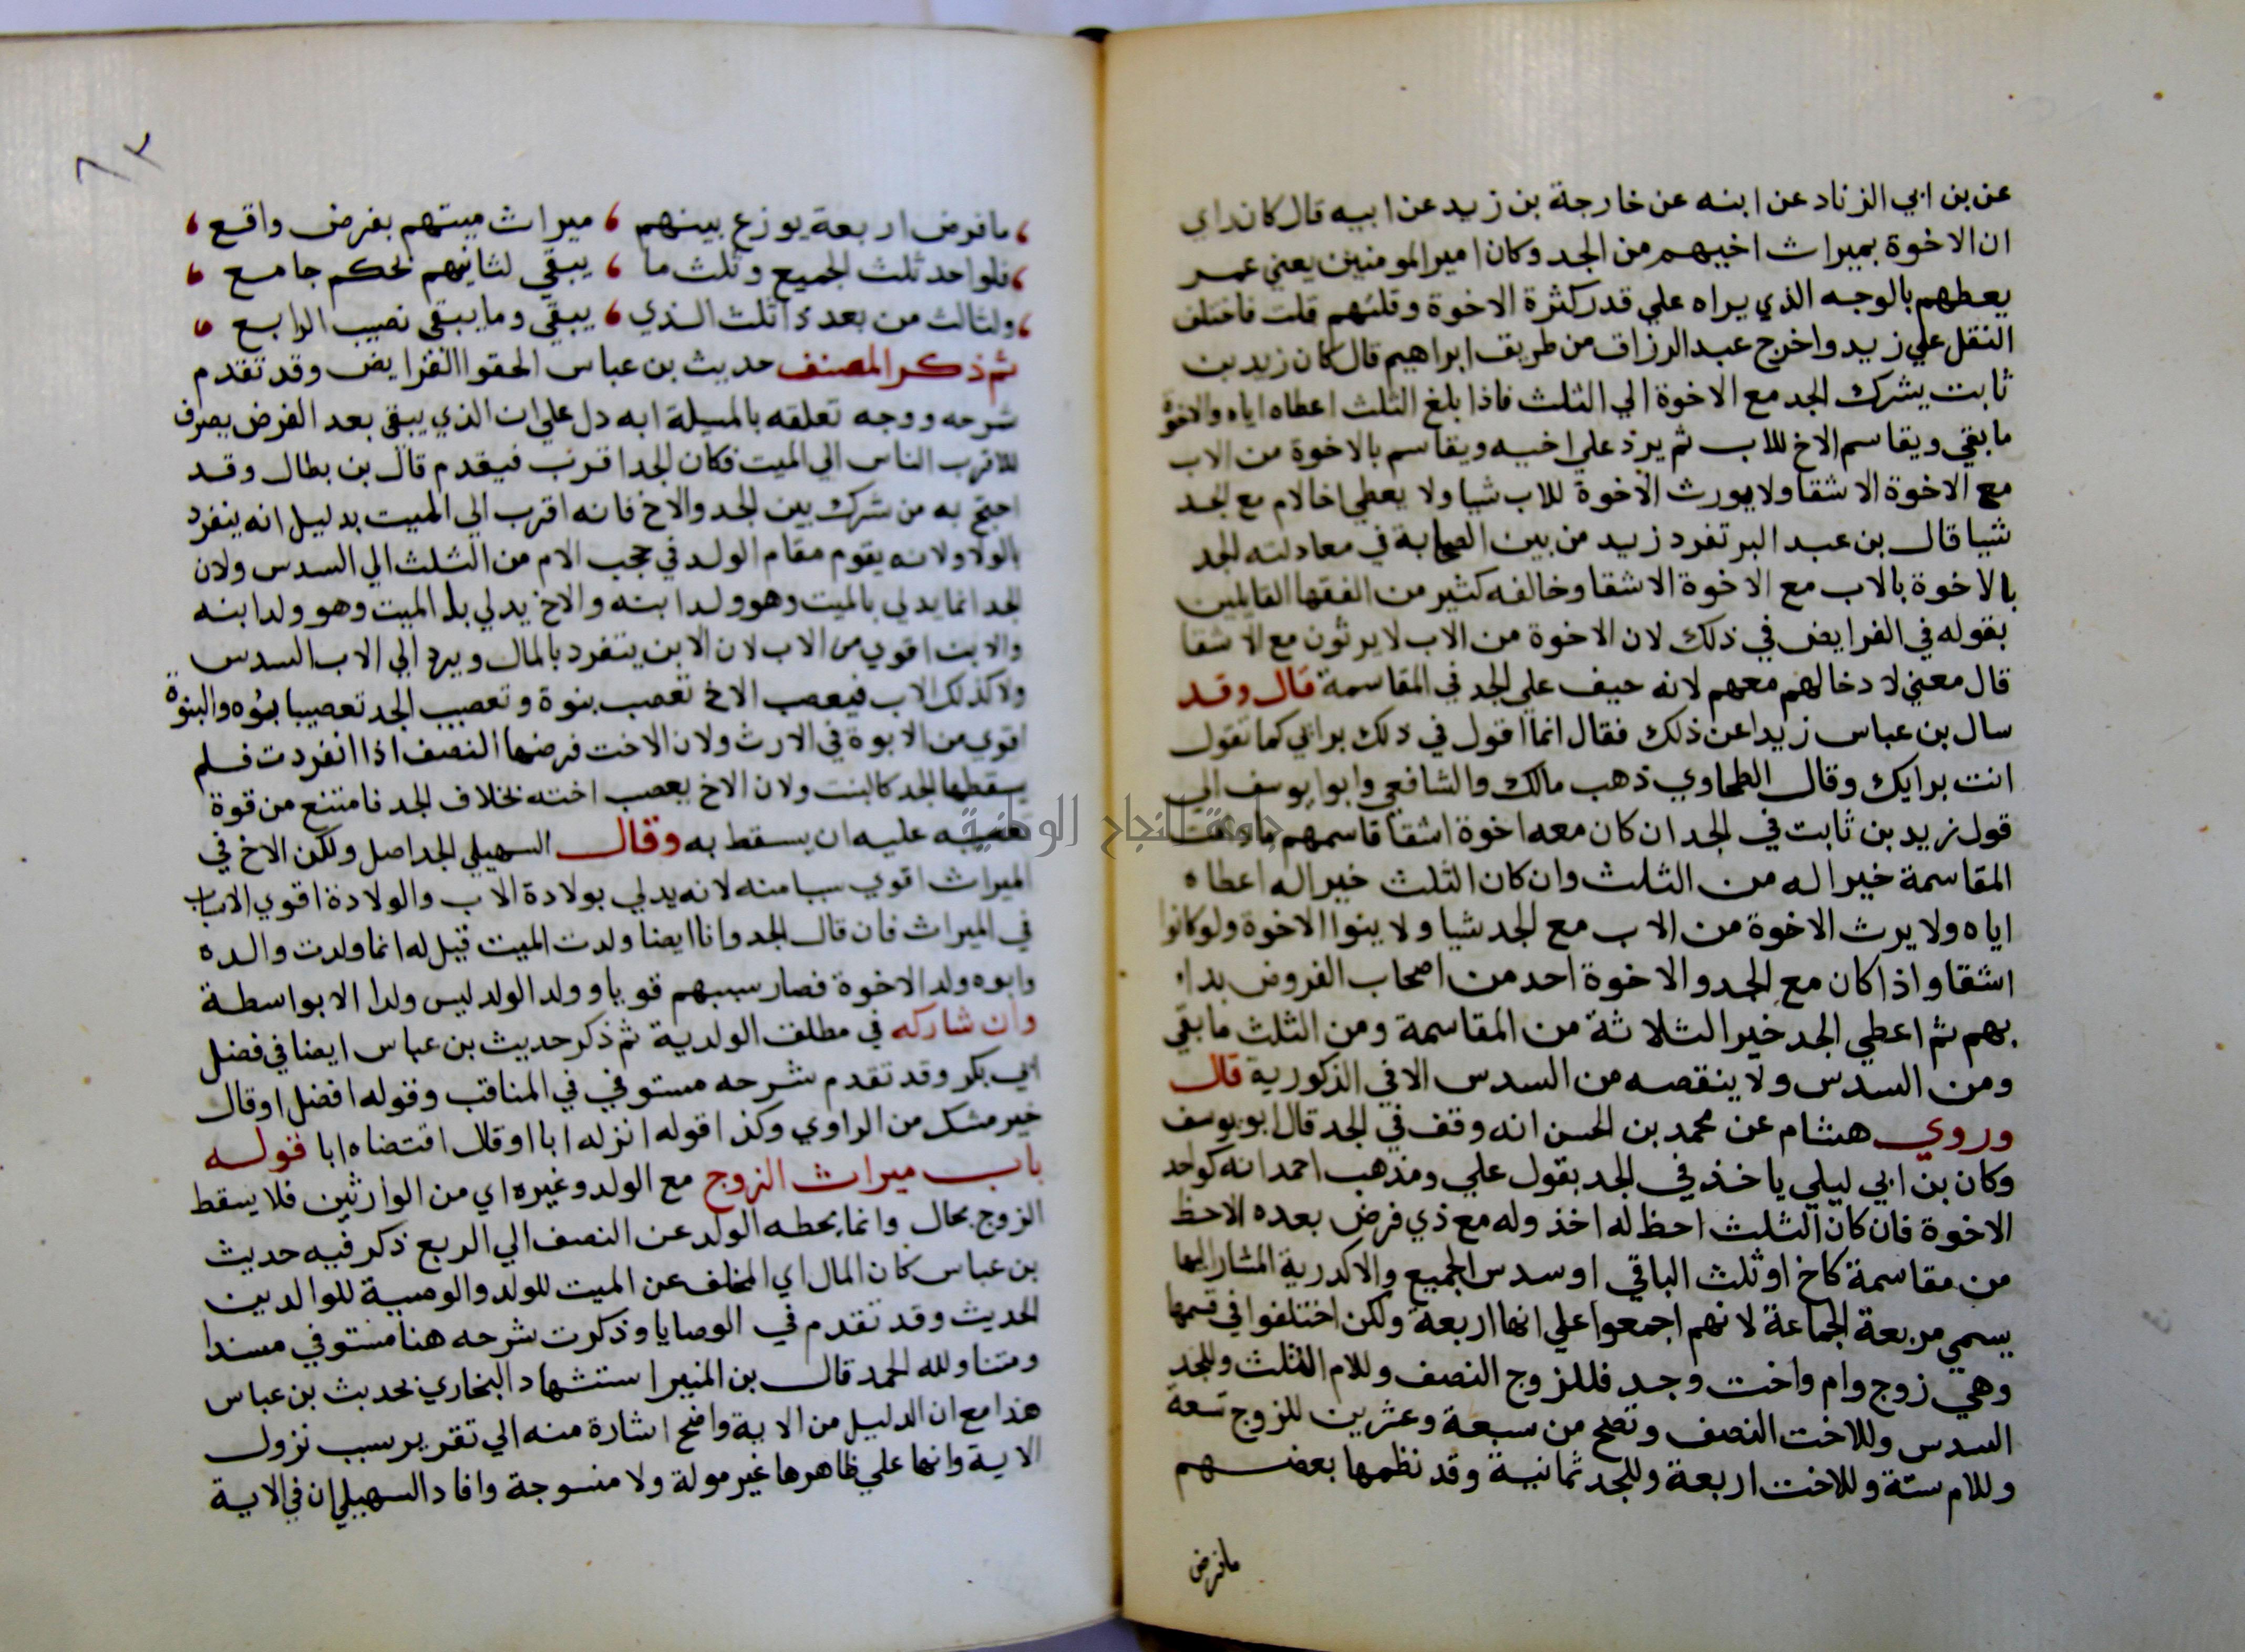 عن بن ابي الزناد عن ابنه عن خارجة بن زيد عن ابيه قال كان راي
ان الاخوة بميراث اخيهم من الجد وكان امير المومنين يعني عمر
يعطهم بالوجه الذي يراه علي قدر كثرة الاخوة وقلتهم قلت فاختلف
النقل علي زيد واخرج عبد الرزاق من طريق ابراهيم قال كان زيد بن
ثابت يشرك الجد مع الاخوة الي الثلث فاذا بلغ الثلث اعطاه اياه والاخوة
ما بقي ويقاسم الاخ للاب ثم يرد علي اخيه ويقاسم بالاخوة من الاب
مع الاخوة الاشقا ولا يورث الاخوة للاب شيا ولا يعطي اخا لام مع الجد
شيا قال بن عبد البر تفرد زيد من بين الصحابة في معادلته الجد
بالاخوة بالاب مع الاخوة الاشقا وخالفه كثير من الفقها القايلين
بقوله في الفرايض في ذلك لان الاخوة من الاب لا يرثون مع الاشقا
قال معني لادخالهم معهم لانه حيف علي الجد في المقاسمة قال وقد
سال بن عباس زيدا عن ذلك فقال انما اقول في ذلك برائي كما تقول
انت برايك وقال الطحاوي ذهب مالك والشافعي وابو يوسف الي
قول زيد بن ثابت في الجد ان كان معه اخوة اشقا قاسمهم ما دامت
المقاسمة خيرا له من الثلث وان كان الثلث خيرا له اعطاه
اياه ولا يرث الاخوة من الاب مع الجد شيا ولا بنوا الاخوة ولو كانوا
اشقا واذا كان مع الجد والاخوة احد من اصحاب الفروض بداء
بهم ثم اعطي الجد خير الثلاثة من المقاسمة ومن الثلث ما بقي
ومن السدس ولا ينقصه من السدس الا في الذكورية قال
وروي هشام عن محمد بن الحسن انه وقف في الجد قال ابو يوسف
وكان بن ابي ليلي ياخذ في الجد بقول علي ومذهب احمد انه كواحد
الاخوة فان كان الثلث احظ له اخذ وله مع ذي فرض بعده الاحظ
من مقاسمة كاخ او ثلث الباقي او سدس الجميع والاكدرية المشار اليها
يسمي مربعة الجماعة لانهم اجمعوا علي انها اربعة ولكن اختلفوا في قسمها
وهي زوج وام واخت وجد فللزوج النصف وللام الثلث وللجد
السدس وللاخت النصف وتصح من سبعة وعشرين للزوج تسعة
وللام ستة وللاخت اربعة وللجد ثمانية وقد نظمها بعضهم
مافرض
٦٢
ما فرض اربعة يوزع بينهم ، ميراث ميتهم بفرض واقع ،
فلواحد ثلث الجميع وثلث ما ، يبقي لثانيهم لحكم جامع ،
ولثالث من بعد ذا ثلث الذي ، يبقي وما يبقي نصيب الرابع ،
ثم ذكر المصنف حديث بن عباس الحقوا الفرايض وقد تقدم
شرحه ووجه تعلقه بالمسيلة ابه دل علي ان الذي يبقي بعد الفرض يصرف
للاقرب الناس الي الميت فكان الجد اقرب فيقدم قال بن بطال وقد
احتج به من شرك بين الجد والاخ فانه اقرب الي الميت بدليل انه ينفرد
بالولا ولانه يقوم مقام الولد في حجب الام من الثلث الي السدس ولان
الجد انما يدلي بالميت وهو ولد ابنه والاخ يدلي بلد الميت وهو ولد ابنه
والابن اقوي من الاب لان الابن ينفرد بالمال ويرد الي الاب السدس
ولا كذلك الاب فيعصب الاخ تعصب بنوة وتعصيب الجد تعصيبا بنوه والبنوة
اقوي من الابوة في الارث ولان الاخت فرضها النصف اذا انفردت فلم
يسقطها الجد كالبنت ولان الاخ يعصب اخته بخلاف الجد فامتنع من قوة
تعصيبه عليه ان يسقط به وقال السهيلي الجد اصل ولكن الاخ في
الميراث اقوي سببا منه لانه يدلي بولادة الاب والولادة اقوي الاسباب
في الميراث فان قال الجد وانا ايضا ولدت الميت قيل له انما ولدت والده
وابوه ولد الاخوة فصار سببهم قويا وولد الولد ليس ولدا الا بواسطة
وان شاركه في مطلق الولدية ثم ذكر حديث بن عباس ايضا في فضل
ابي بكر وقد تقدم شرحه مستوفي في المناقب وقوله افضل او قال
خير مشك من الراوي وكذا قوله انزله ابا او قال اقتضاه ابا قوله
باب ميراث الزوج مع الولد وغيره اي من الوارثين فلا يسقط
الزوج بحال وانما يحطه الولد عن النصف الي الربع ذكر فيه حديث
بن عباس كان المال اي المخلف عن الميت للولد والوصية للوالدين
الحديث وقد تقدم في الوصايا وذكرت شرحه هنا مستوفي مسندا
ومتنا ولله الحمد قال بن المنير استشهاد البخاري بحديث بن عباس
هذا مع ان الدليل من الاية واضح اشارة منه الي تقرير سبب نزول
الاية وانها علي ظاهرها غير مولة ولا منسوجة وافاد السهيلي ان في الاية
جامعة النجاح الوطنية